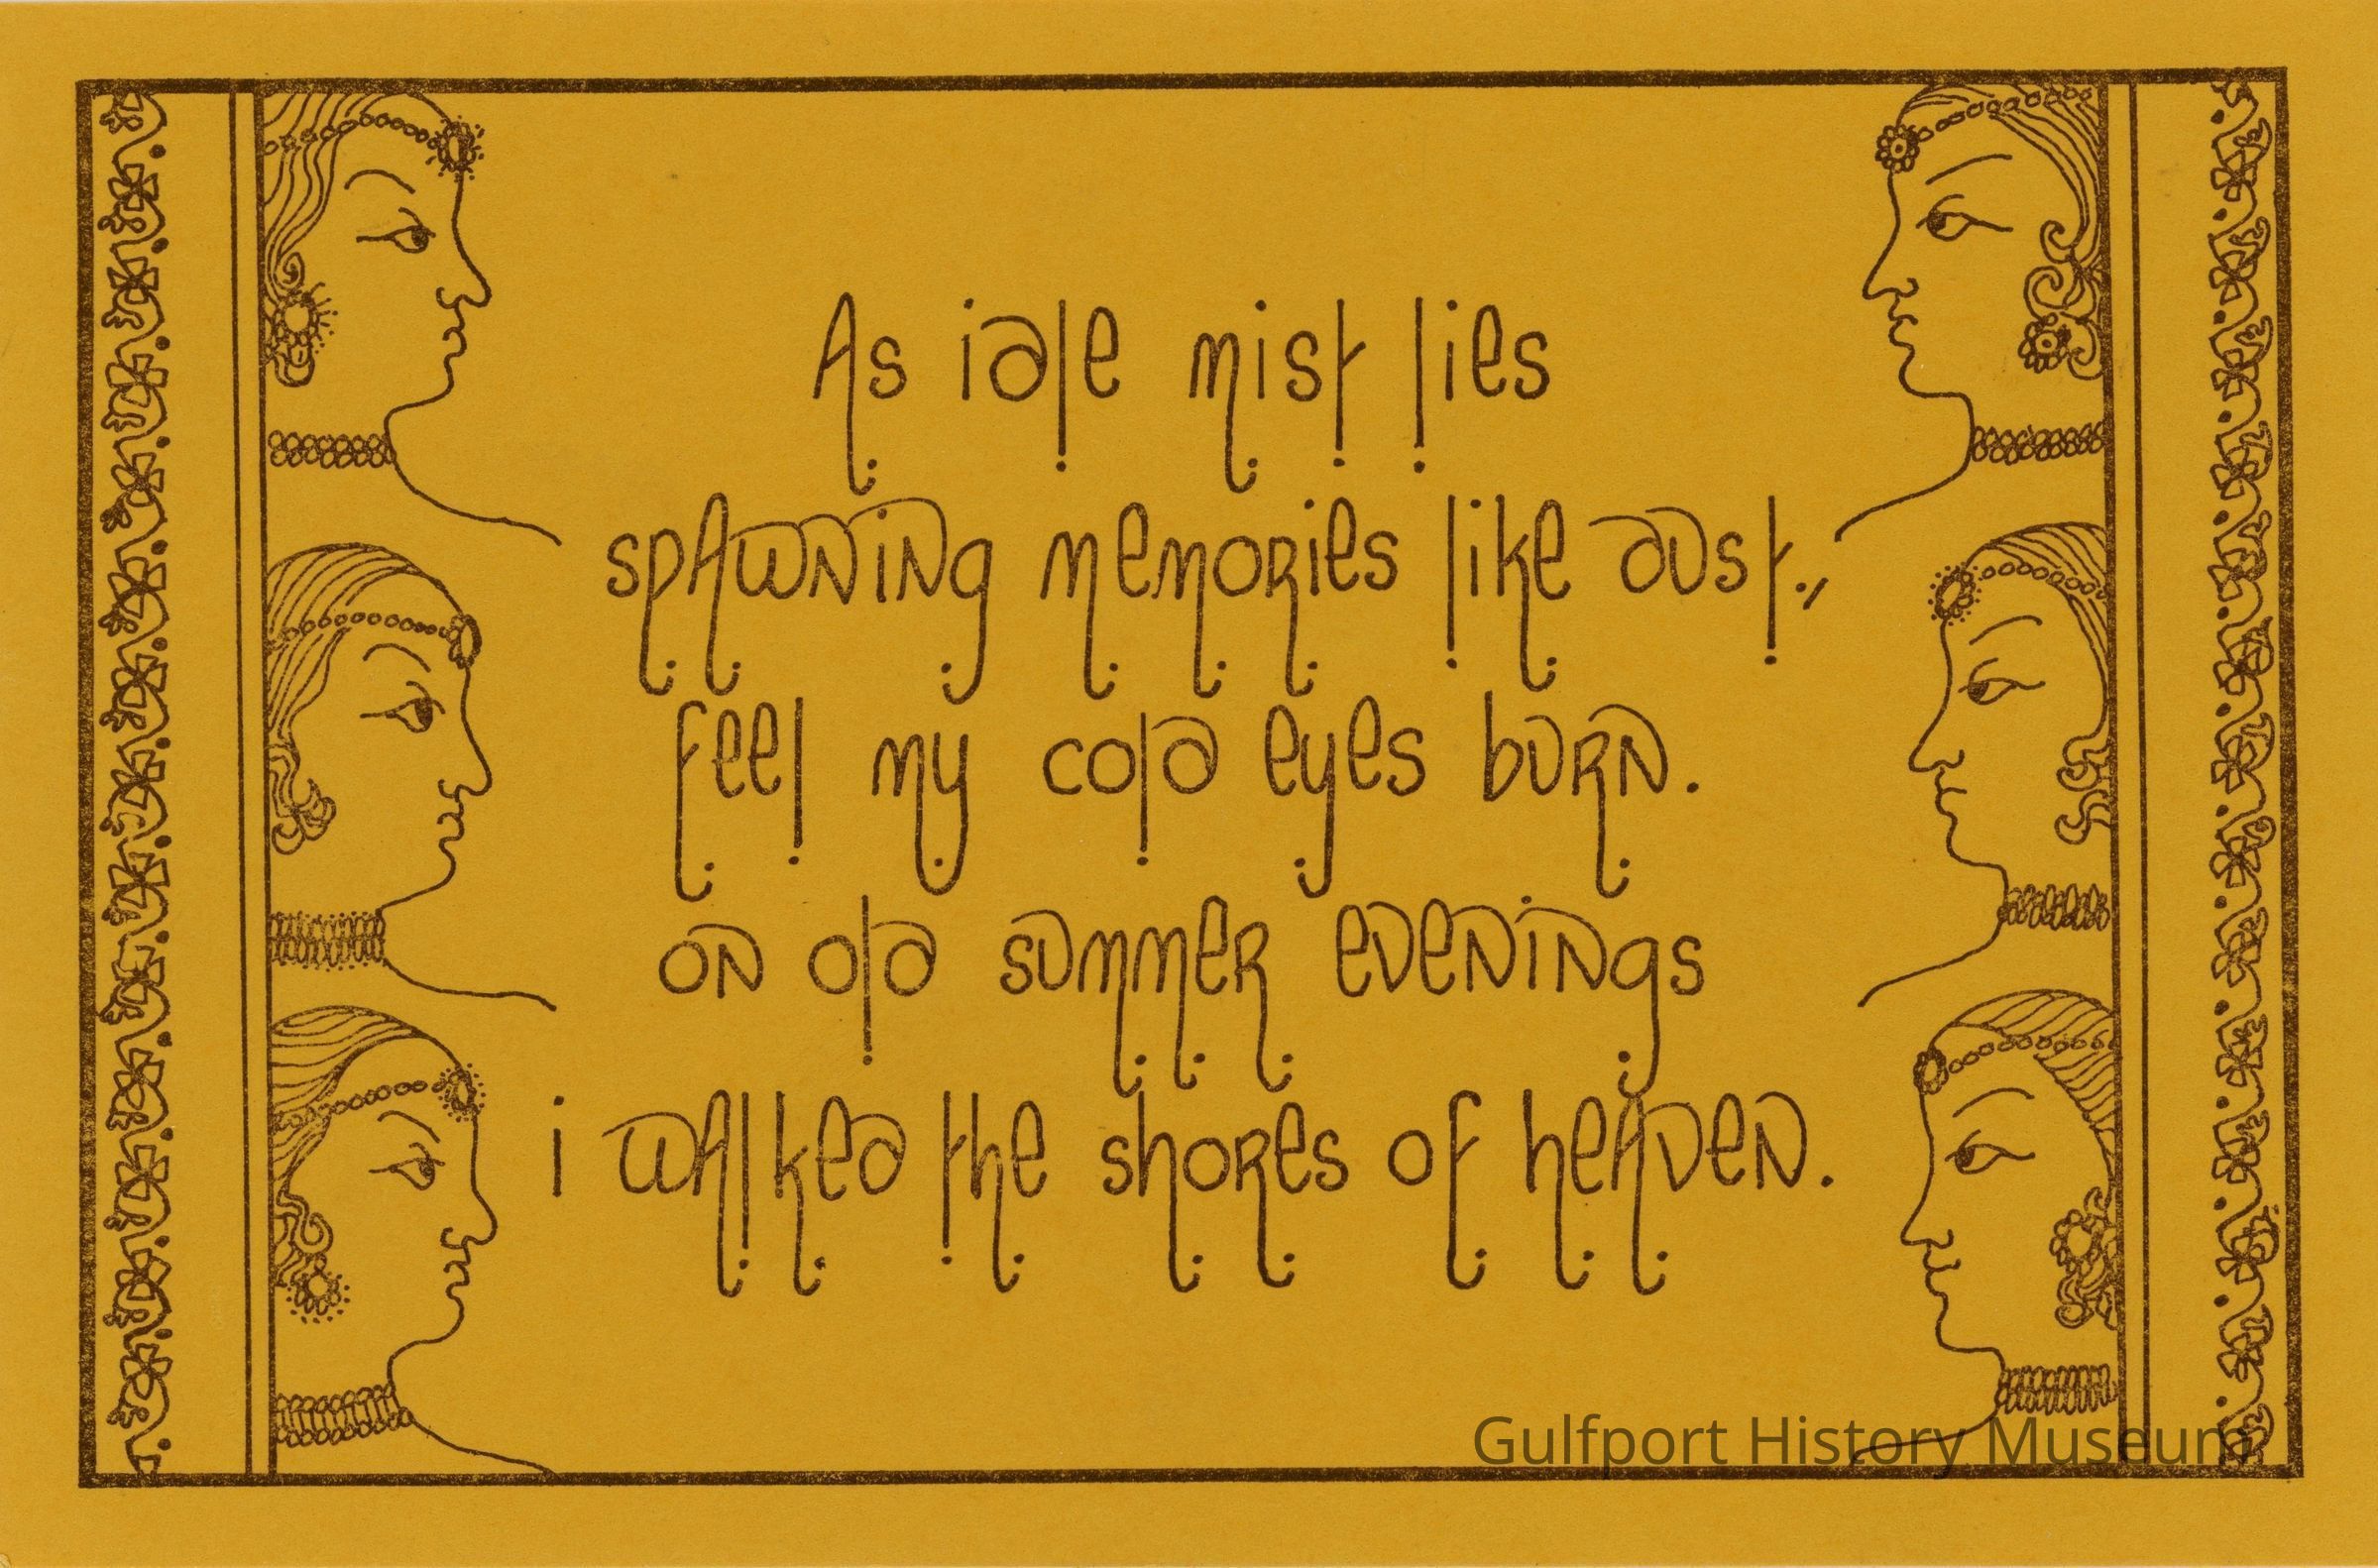 As idle mist lies
spAwNiNg memoRies like dust.,
feel my cold eyes buRN.
oN old summeR eveNiNgs
i wAlked the shoRes of heAveN.
Gulfport History Museum